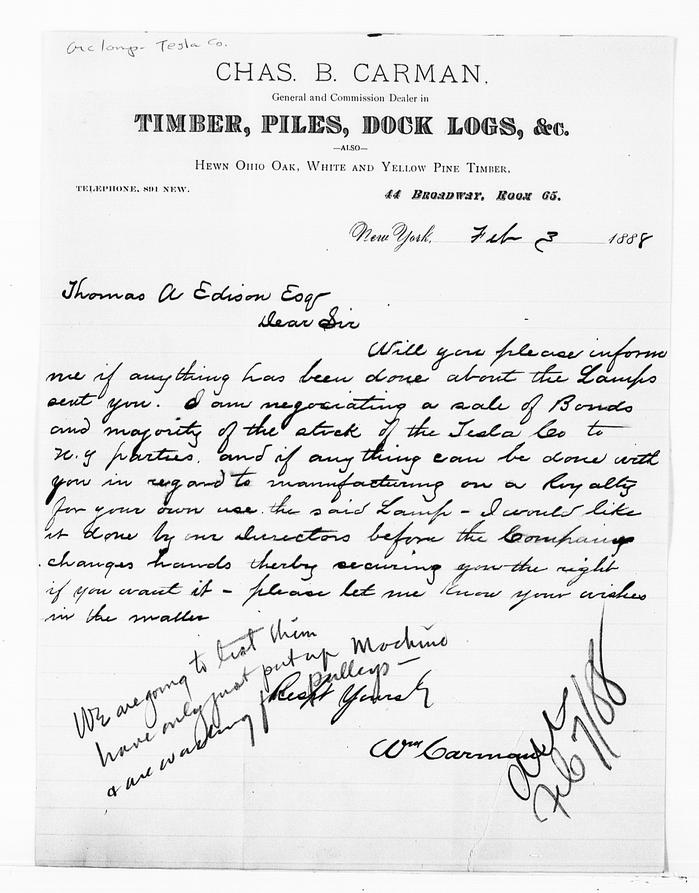 arc lamp - Tesla Co.
CHAS. B. CARMAN,
General and Commission Dealer in
TIMBER, PILES, DOCK LOGS, &c.
—ALSO—
HEWN OHIO OAK, WHITE AND YELLOW PINE TIMBER,
TELEPHONE, 891 NEW.
44 BROADWAY, ROOM 65.
New York, Feb 3 1888
Thomas A Edison Esqr
Dear Sir
Will you please inform
me if anything has been done about the Lamps
sent you. I am negociating a sale of Bonds
and majority of the stock of the Tesla Co to
N.Y parties, and if anything can be done with
you in regard to manufacturing on a Royalty
for your own use the said Lamp - I would like
it done by our directors before the Company
changes hands therby securing you the right
if you want it - please let me know your wishes
in the matter
Respt Yours
Wm Carman
We are going to test them
have only just put up Machine
& are waiting for pulleys -
Feb 7/88